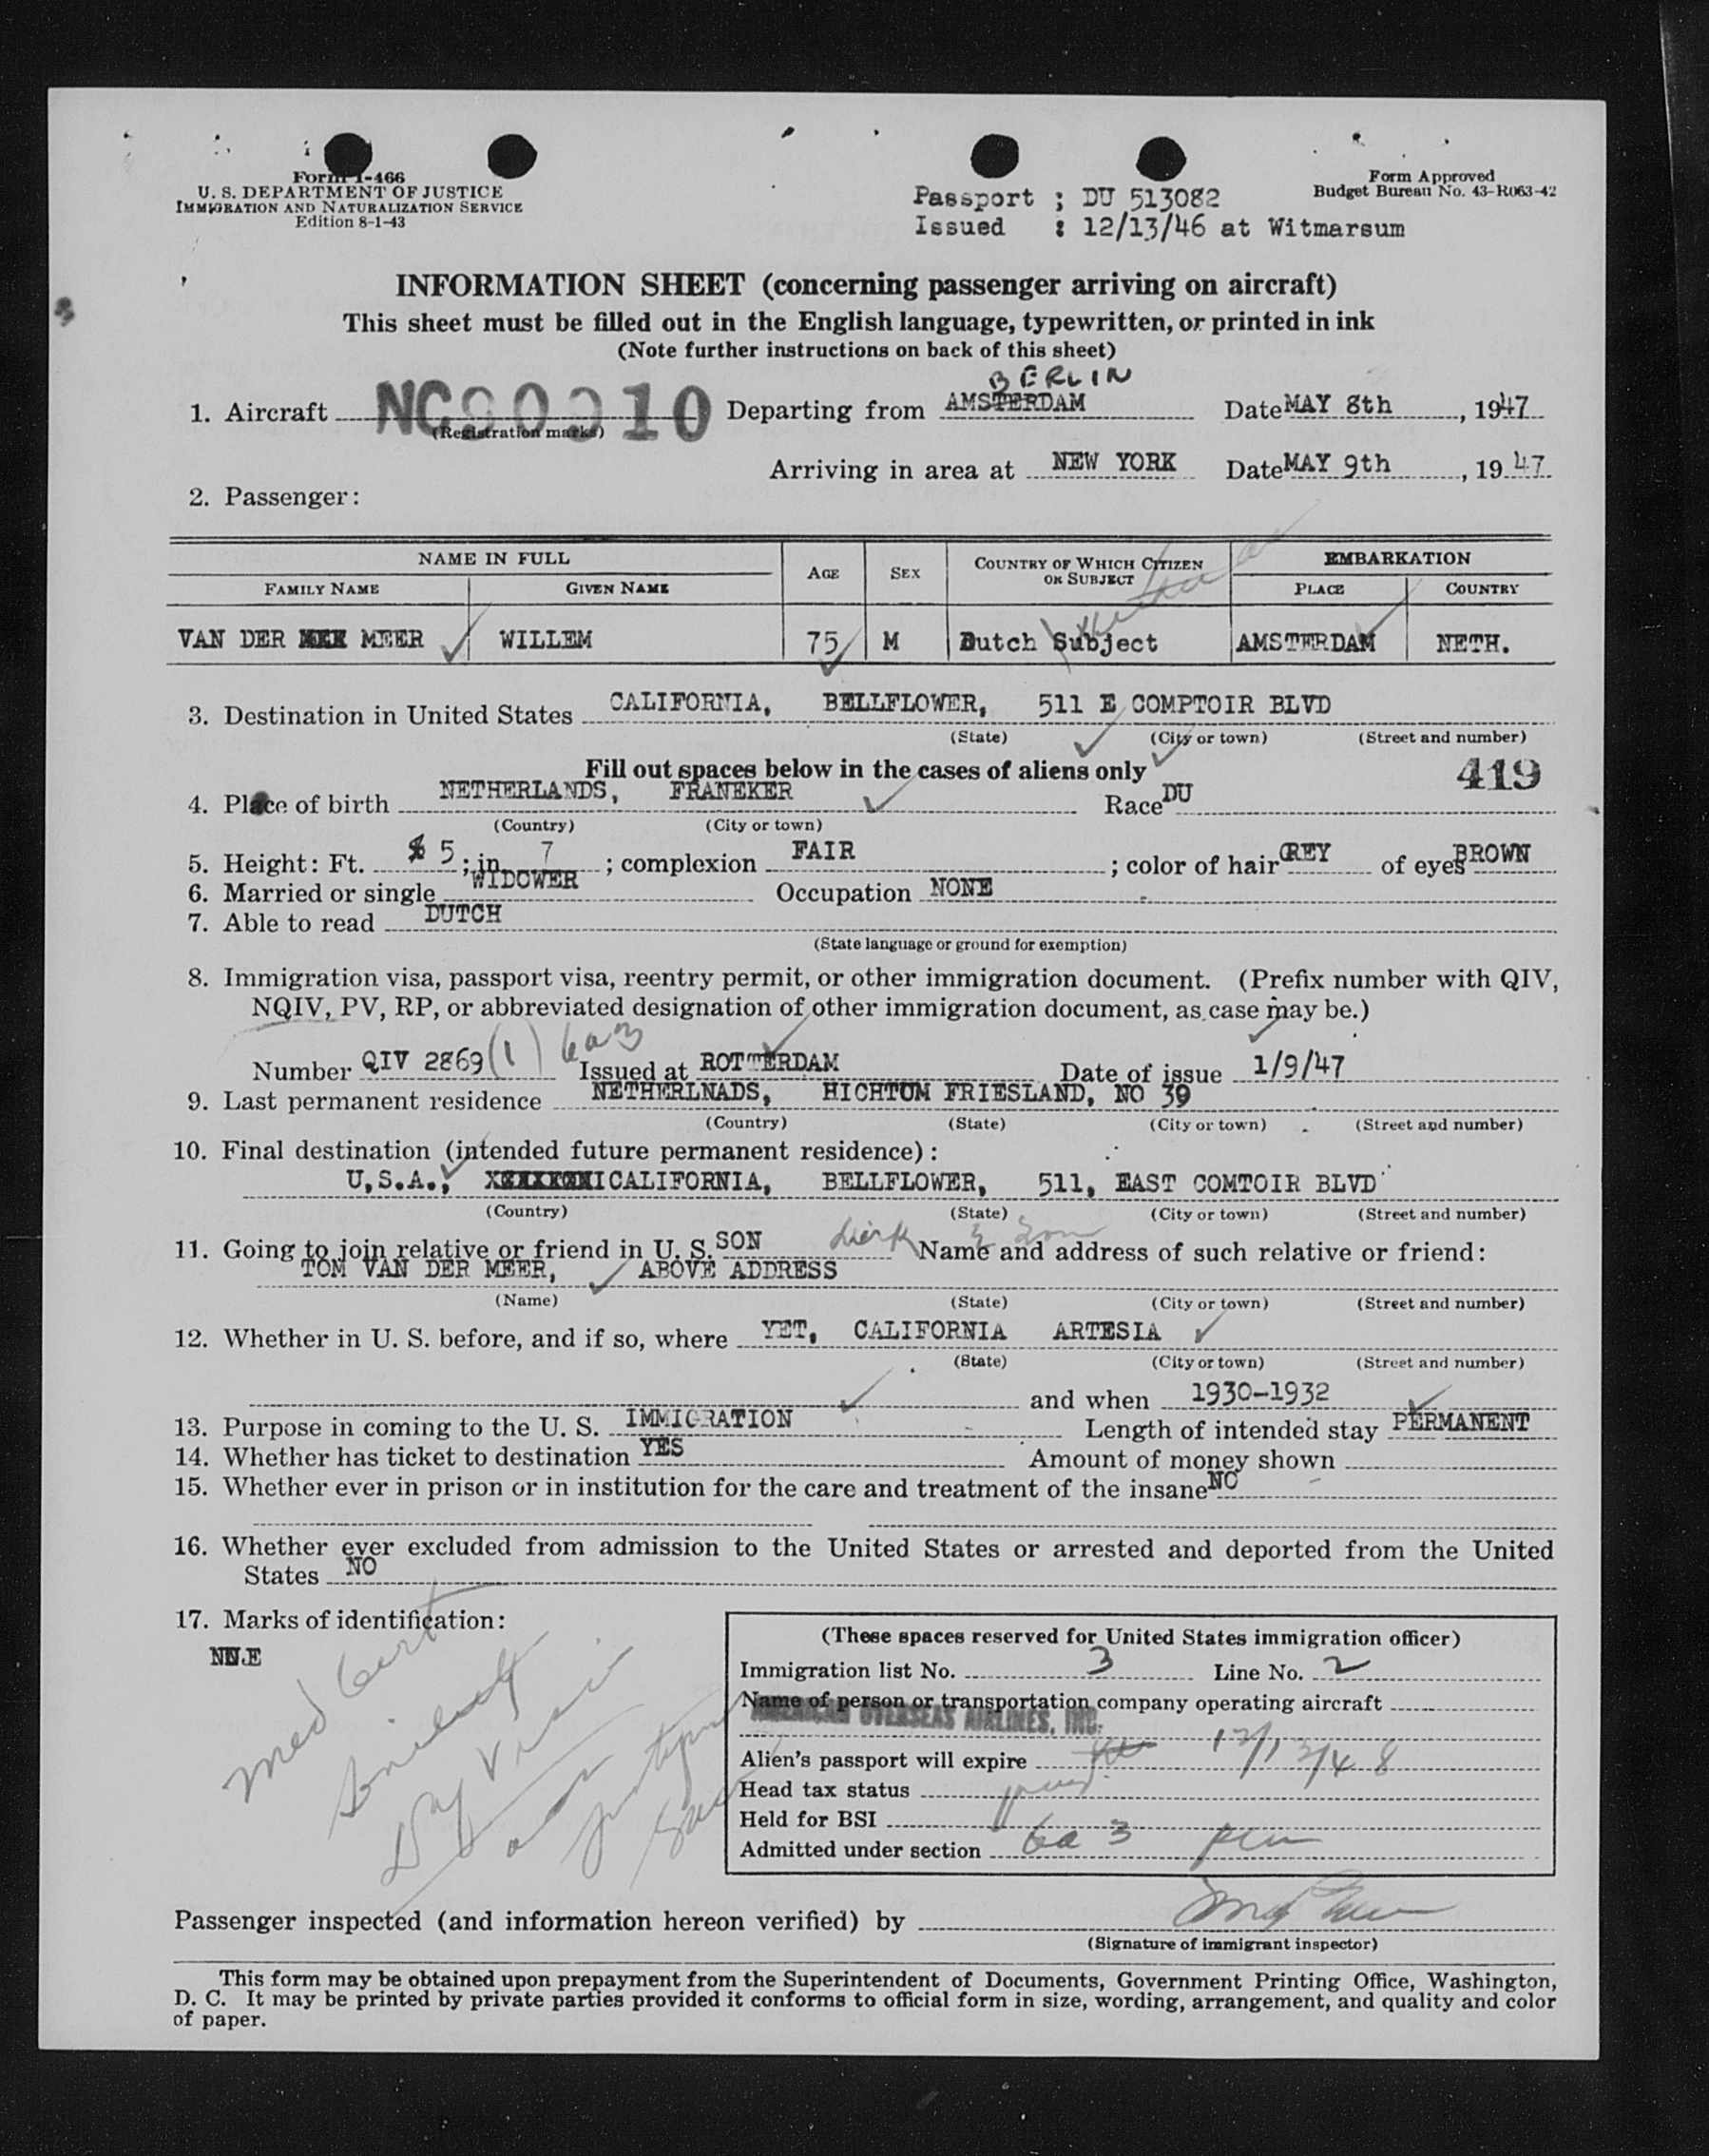 Form I-466
U. S. DEPARTMENT OF JUSTICE
IMMIGRATION AND NATURALIZATION SERVICE
Edition 8-1-43
Passport ; DU 513082
Issued : 12/13/46 at Witmarsum
Form Approved
Budget Bureau No. 43-R063-42
INFORMATION SHEET (concerning passenger arriving on aircraft)
This sheet must be filled out in the English language, typewritten, or printed in ink
(Note further instructions on back of this sheet)
BERLIN
1. Aircraft NC90910 Departing from AMSTERDAM Date MAY 8th, 1947
(Registration marks)
Arriving in area at NEW YORK Date MAY 9th, 1947
2. Passenger:
NAME IN FULL AGE SEX COUNTRY OF WHICH CITIZEN OR SUBJECT EMBARKATION
FAMILY NAME GIVEN NAME PLACE COUNTRY
VAN DER MEER WILLEM 75 M Dutch Subject AMSTERDAM NETH.
3. Destination in United States CALIFORNIA, BELLFLOWER, 511 E COMPTOIR BLVD
(State) (City or town) (Street and number)
Fill out spaces below in the cases of aliens only
419
4. Place of birth NETHERLANDS, FRANEKER Race DU
(Country) (City or town)
5. Height: Ft. 5; in. 7; complexion FAIR; color of hair GREY of eyes BROWN
6. Married or single WIDOWER Occupation NONE
7. Able to read DUTCH
(State language or ground for exemption)
8. Immigration visa, passport visa, reentry permit, or other immigration document. (Prefix number with QIV,
NQIV, PV, RP, or abbreviated designation of other immigration document, as case may be.)
Number QIV 2869 (1) 6a3 Issued at ROTTERDAM Date of issue 1/9/47
9. Last permanent residence NETHERLNADS, HICHTUM FRIESLAND, NO 39
(Country) (State) (City or town) (Street and number)
10. Final destination (intended future permanent residence):
U.S.A., CALIFORNIA, BELLFLOWER, 511, EAST COMTOIR BLVD
(Country) (State) (City or town) (Street and number)
11. Going to join relative or friend in U. S. SON Dirk Name and address of such relative or friend:
TOM VAN DER MEER, ABOVE ADDRESS
(Name) (State) (City or town) (Street and number)
12. Whether in U. S. before, and if so, where YET, CALIFORNIA ARTESIA
(State) (City or town) (Street and number)
and when 1930-1932
13. Purpose in coming to the U. S. IMMIGRATION Length of intended stay PERMANENT
14. Whether has ticket to destination YES Amount of money shown
15. Whether ever in prison or in institution for the care and treatment of the insane NO
16. Whether ever excluded from admission to the United States or arrested and deported from the United
States NO
17. Marks of identification:
Med Cert
Senility
(These spaces reserved for United States immigration officer)
Immigration list No. 3 Line No. 2
Name of person or transportation company operating aircraft
AMERICAN OVERSEAS AIRLINES, INC.
Alien's passport will expire 12/13/48
Head tax status
Held for BSI
Admitted under section 6a3
Passenger inspected (and information hereon verified) by
(Signature of immigrant inspector)
This form may be obtained upon prepayment from the Superintendent of Documents, Government Printing Office, Washington,
D. C. It may be printed by private parties provided it conforms to official form in size, wording, arrangement, and quality and color
of paper.